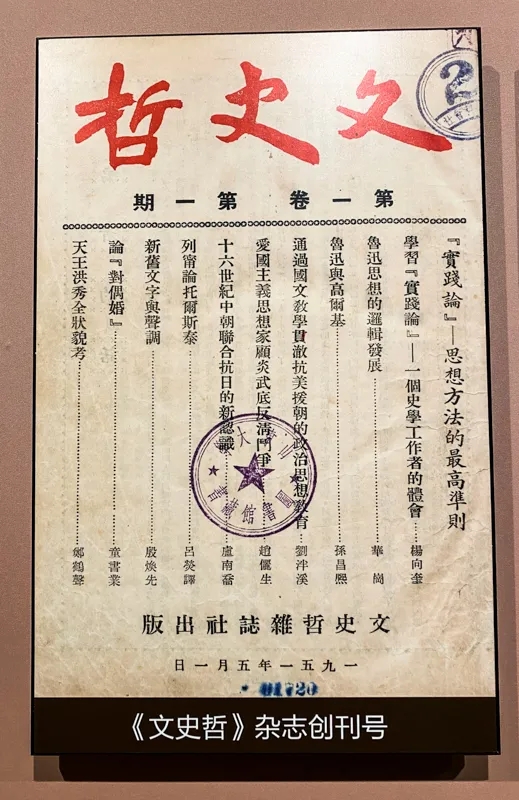 文史哲
第一卷 第一期
『實踐論』—思想方法的最高準則
學習『實踐論』—一個史學工作者的體會……楊向奎
魯迅思想的邏輯發展……華崗
魯迅與高爾基……孫昌熙
通過國文教學貫澈抗美援朝的政治思想教育……劉泮溪
愛國主義思想家顧炎武底反清鬥爭……趙儷生
十六世紀中朝聯合抗日的新認識……盧南喬
列甯論托爾斯泰……呂熒譯
新舊文字與聲調……殷煥先
論『對偶婚』……童書業
天王洪秀全狀貌考……鄭鶴聲
山東大學
圖書館藏書
文史哲雜誌社出版
一九五一年五月一日
01720
《文史哲》杂志创刊号